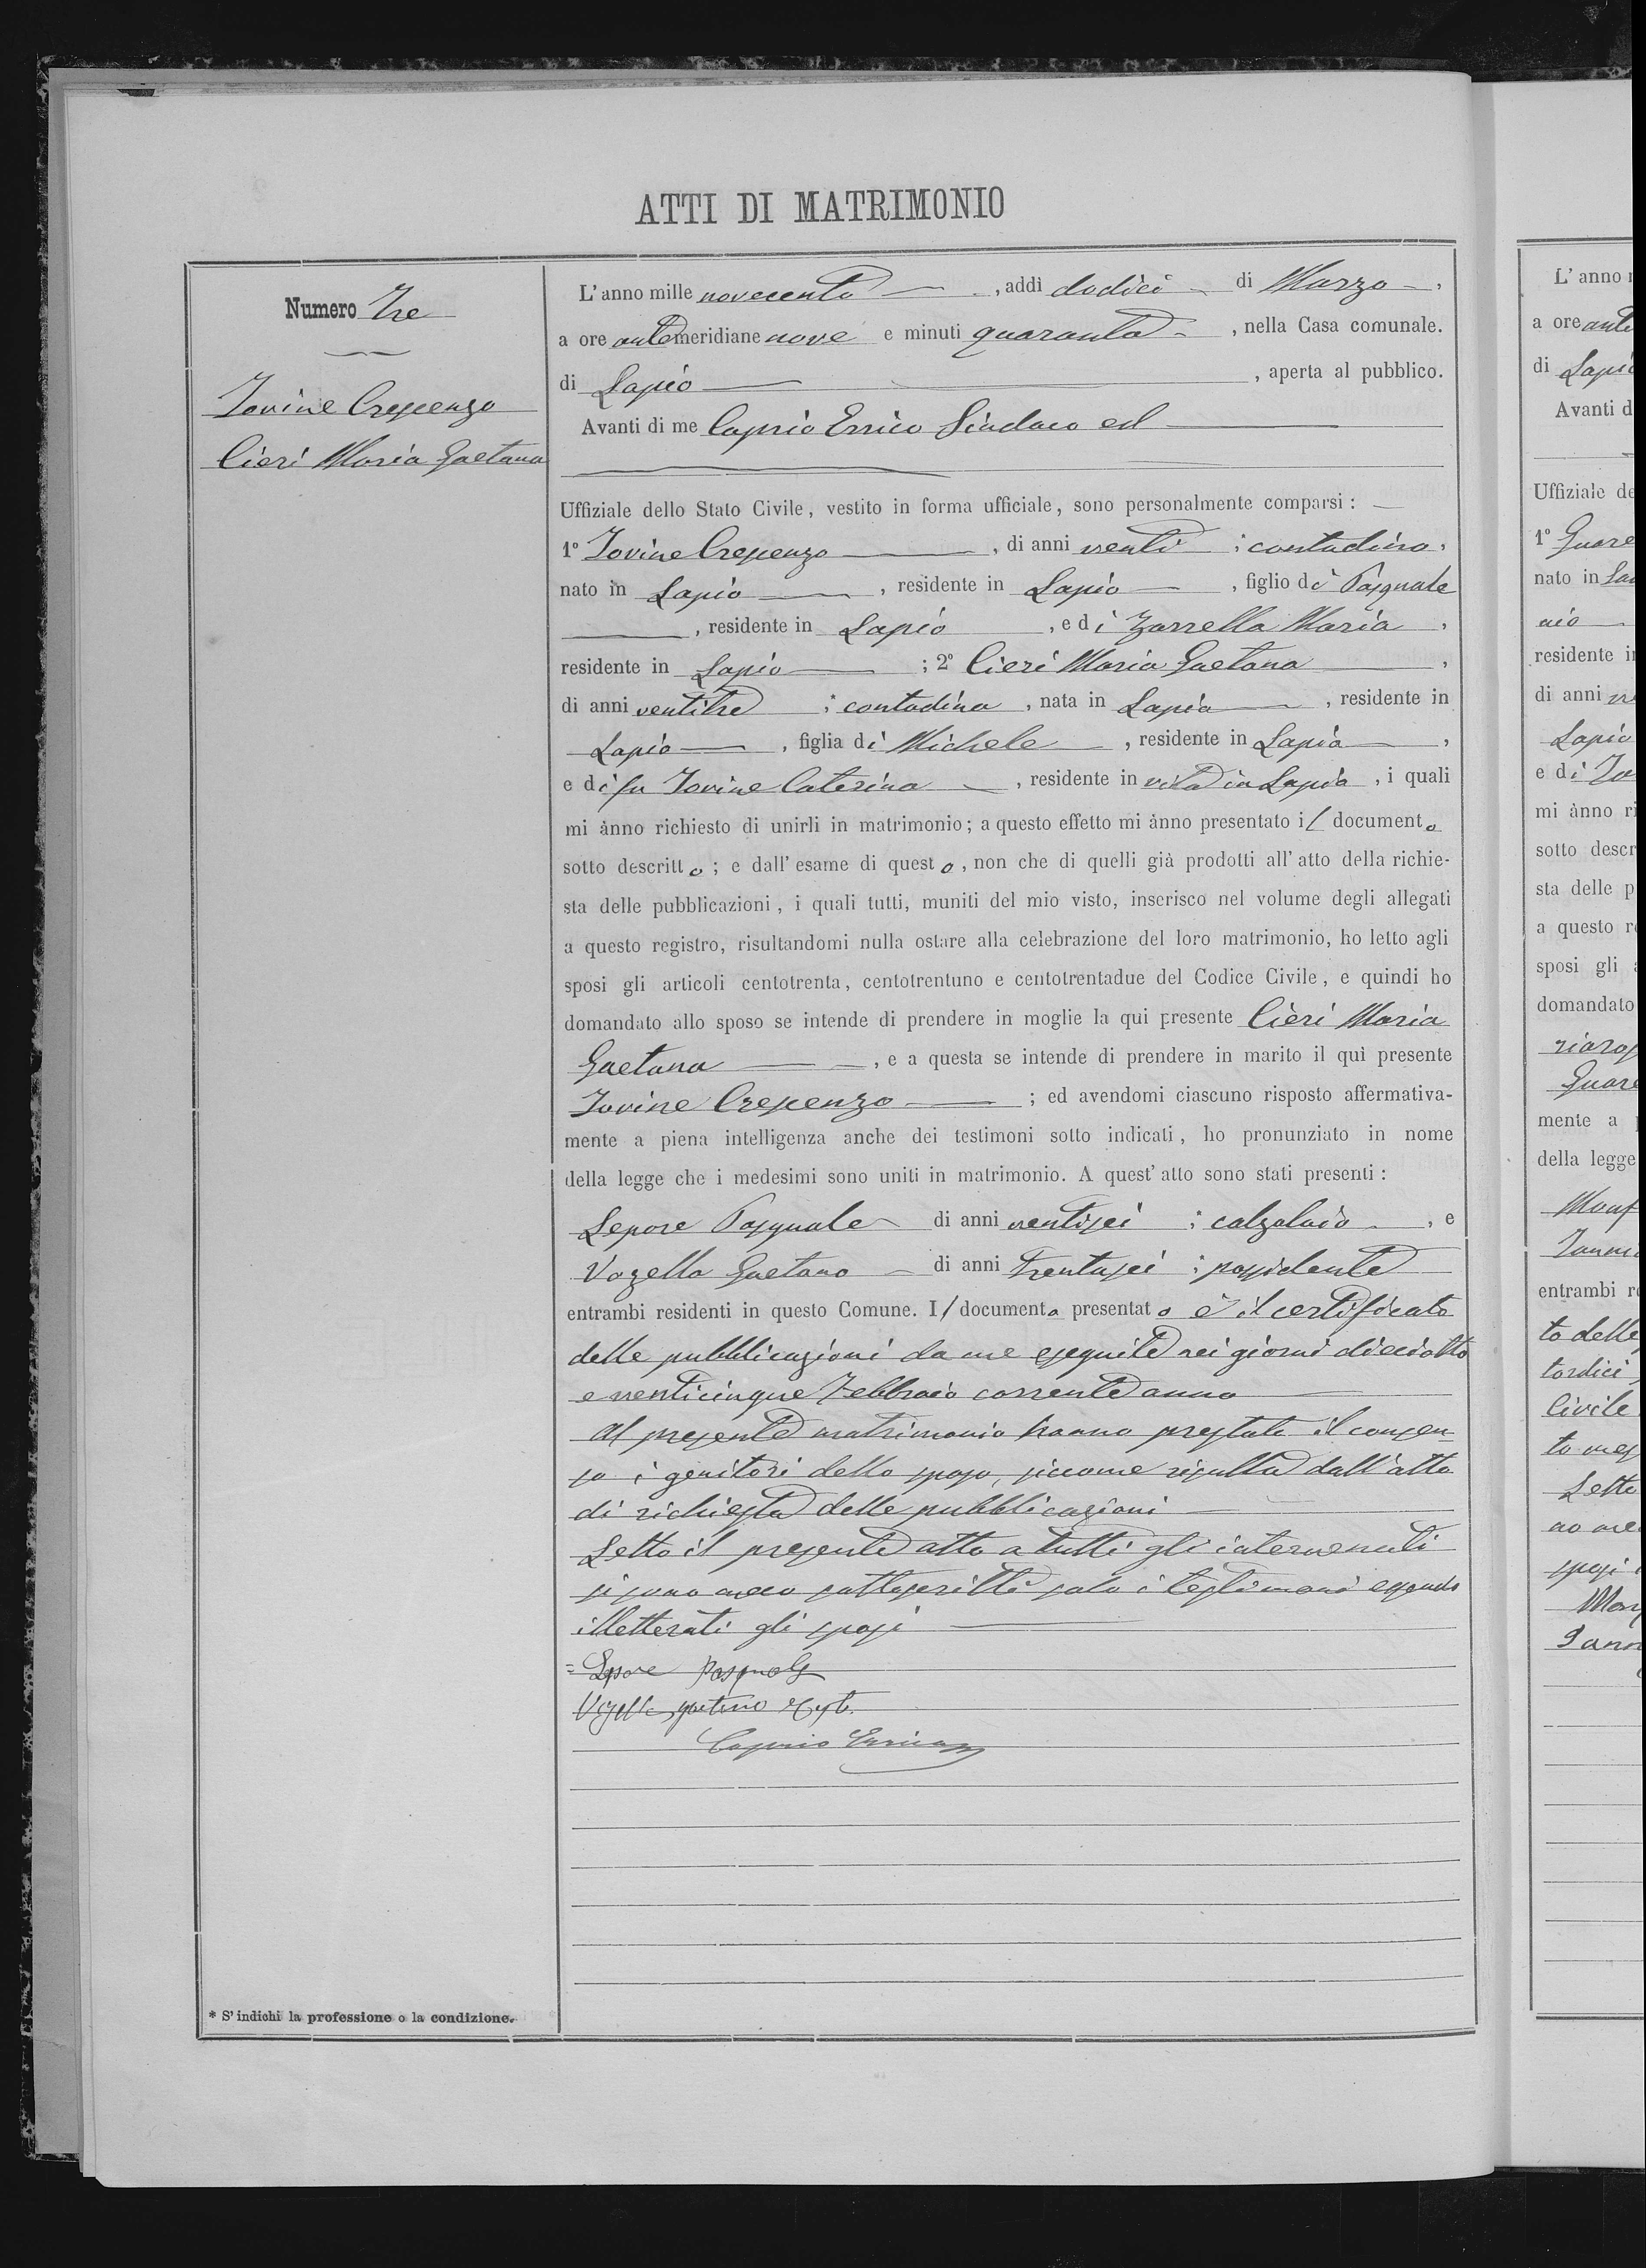 ATTI DI MATRIMONIO
Numero Tre
Iovine Crescenzo
Cieri Maria Gaetana
L'anno mille novecento, addì dodici di Marzo,
a ore antemeridiane nove e minuti quaranta, nella Casa comunale.
di Lapio, aperta al pubblico.
Avanti di me Caprio Errico Sindaco ed
Uffiziale dello Stato Civile, vestito in forma ufficiale, sono personalmente comparsi:
1° Iovine Crescenzo, di anni venti; contadino,
nato in Lapio, residente in Lapio, figlio di Pasquale
, residente in Lapio, e di Zarrella Maria,
residente in Lapio; 2° Cieri Maria Gaetana,
di anni ventitre; contadina, nata in Lapio, residente in
Lapio, figlia di Michele, residente in Lapio,
e di fu Iovine Caterina, residente in vita in Lapio, i quali
mi ànno richiesto di unirli in matrimonio; a questo effetto mi ànno presentato il documento
sotto descritto; e dall'esame di questo, non che di quelli già prodotti all'atto della richie-
sta delle pubblicazioni, i quali tutti, muniti del mio visto, inserisco nel volume degli allegati
a questo registro, risultandomi nulla ostare alla celebrazione del loro matrimonio, ho letto agli
sposi gli articoli centotrenta, centotrentuno e centotrentadue del Codice Civile, e quindi ho
domandato allo sposo se intende di prendere in moglie la qui presente Cieri Maria
Gaetana, e a questa se intende di prendere in marito il quì presente
Iovine Crescenzo; ed avendomi ciascuno risposto affermativa-
mente a piena intelligenza anche dei testimoni sotto indicati, ho pronunziato in nome
della legge che i medesimi sono uniti in matrimonio. A quest'atto sono stati presenti:
Lepore Pasquale di anni ventisei; calzolaio, e
Vozella Gaetano di anni trentasei; possidente
entrambi residenti in questo Comune. Il documento presentato è il certificato
delle pubblicazioni da me eseguite nei giorni diciotto
e venticinque Febbraio corrente anno
Al presente matrimonio hanno prestato il consen-
so i genitori dello sposo, siccome risulta dall'atto
di richiesta delle pubblicazioni
Letto il presente atto a tutti gli intervenuti
si sono meco sottoscritti solo i testimoni essendo
illetterati gli sposi
= Lepore Pasquale
Vozella gaetano
Caprio Errico
* S'indichi la professione o la condizione.
L'anno
a ore ante
di Lapio
Avanti d
Uffiziale de
1°
nato in
residente i
di anni
Lapio
e di
mi ànno ri
sotto descr
sta delle p
a questo re
sposi gli
domandato
mente a
della legge
entrambi re
to delle
tordici
Civile